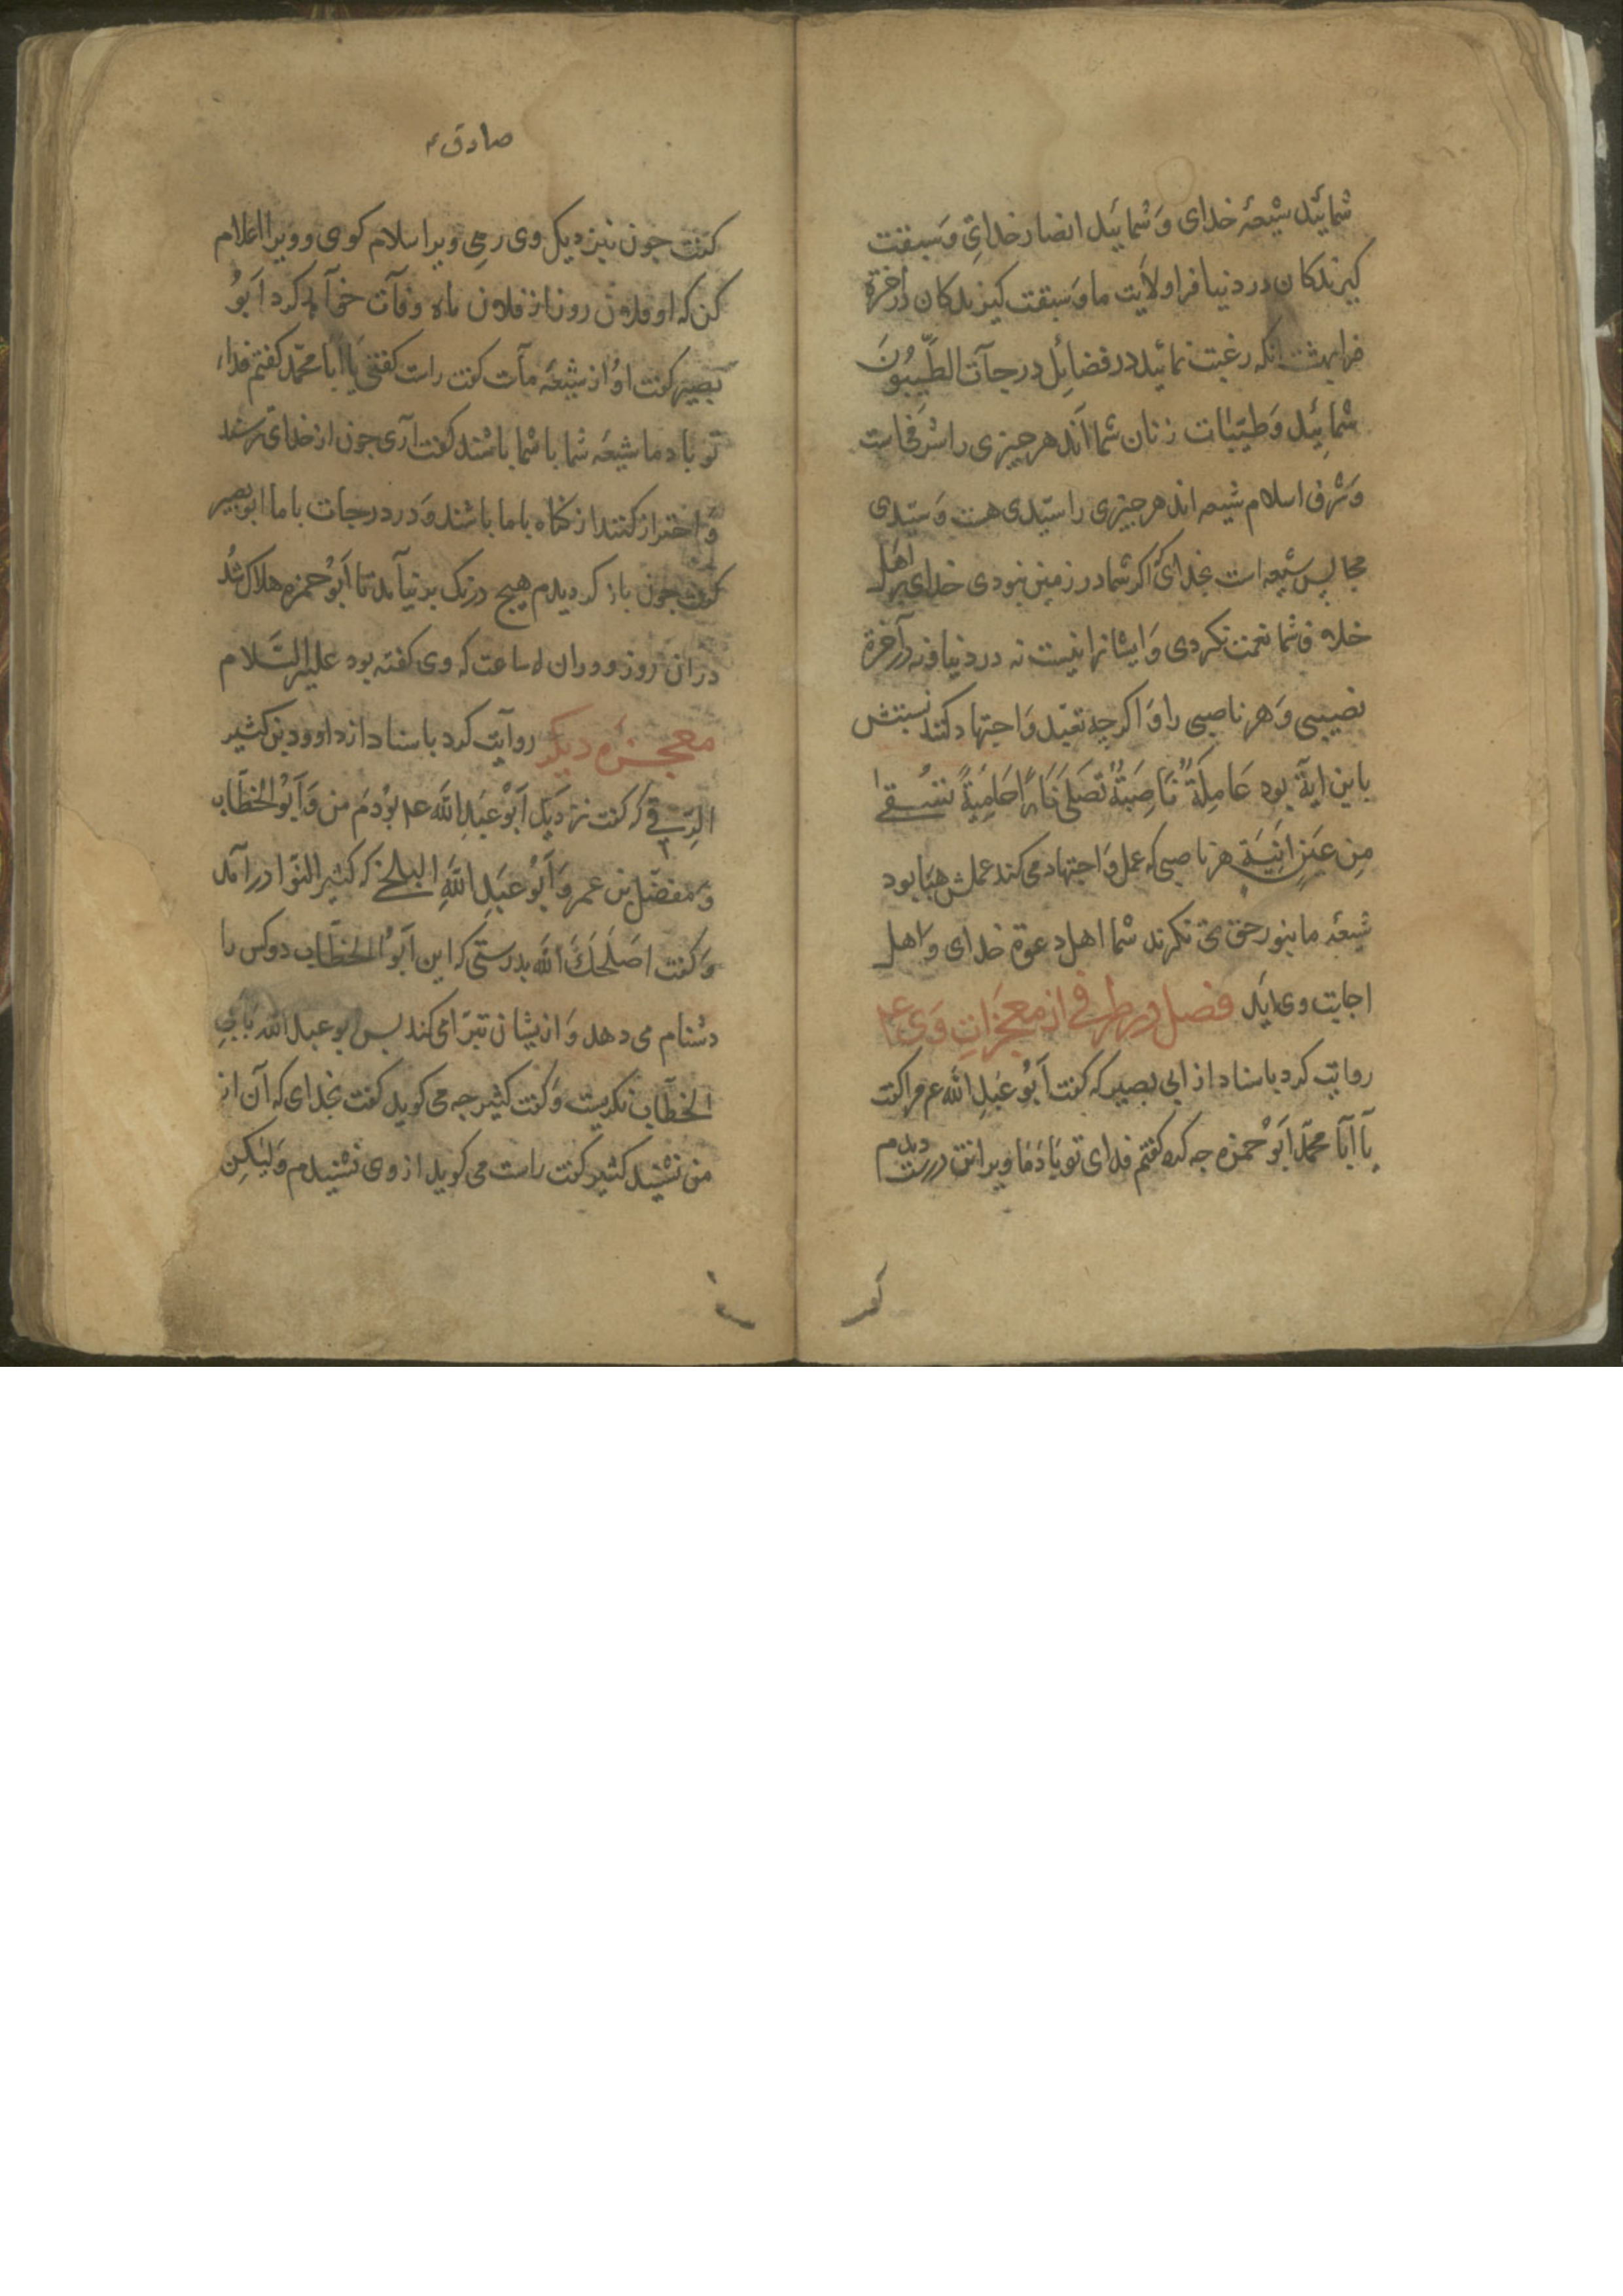 شمائید شیعهٔ خدای وَ شمائید انصار خدای وَ سبقت
کیرندکان در دنیا فرا ولایت ما وَ سبقت کیرندکان در آخرة
فرا بهشت انکه رغبت نمائید در فضائل درجآت الطَّیِّبُونَ
شمائید وَ طیّبات زنان شما اند هر چیزی را شرفی است
وَ شرف اسلام شیعه اند هر چیزی را سیّدی هست وَ سیّدی
مجالس شیعه است بخدای اکر شما در زمین نبودی خدای بر اهل
خلاف شما نعمت نکردی وَ ایشانرا نیست نه در دنیا و نه در آخرة
نصیبی وَ هر ناصبی را وَ اکرچه تعبّد وَ اجتهاد کند نسبتش
باین ایة بود عَامِلَةٌ نَاصِبَةٌ تَصْلَی نَارًا حَامِیَةً تُسْقیٰ
مِن عَیْنٍ اٰنِیَةٍ هر ناصبی که عمل وَ اجتهاد می کند عملش هَبَا بود
شیعهٔ ما بنور حق می نکرند شما اهل دعوة خدای و اهل
اجابت وی اید فصل در طرفی از معجزاتِ وَی عم
روایت کرد باسناد از ابی بصیر که کفت اَبُو عَبدِ الله عم مرا کفت
یآ اَبَا محمّد اَبُو حمزه چه کرد کفتم فدای تو بَادَم ویرا تن درست دیدم
صادق ع
کفت چون نیز دیک وی رسی ویرا سلام کوی و ویرا اعلام
کن که او فلان روز از فلان ماه وفآت خوآهد کرد اَبُو
بصیر کفت اوُ از شیعهٔ مآست کفت راست کفتی یَا اَبَا محمّد کفتم فداء
تو باد ما شیعهٔ شما با شما باشند کفت آری چون از خدای ترسند
وَ احتراز کنند از کناه با ما باشند وَ در درجات با ما ابو بصیر
کفت چون باز کردیدم هیچ درنک بر نیآمد تا اَبُو حمزه هلاک شد
در آن روز و در ان ساعت که وی کفته بود علیه السَّلام
معجزهٔ دیکر روآیت کرد باسناد از داوود بن کثیر
الرّقی که کفت نزدیک اَبُو عَبدِ الله عم بُودم من وَ اَبُو الخطَّاب
وَ مفضّل بن عمر وَ اَبُو عَبدِ اللهِ البلخی که کثیر النّوا در آمد
وَ کفت اَصْلَحَكَ الله بدرستی که این اَبُو الخطَّاب دو کس را
دشنام می دهد وَ از یشان تبرّا می کند پس ابو عبد الله باَبِی
الخطَّاب نکریست وَ کفت کثیر چه می کوید کفت بخدای که آن از
من نشنید کثیر کفت راست می کوید از وی نشنیدم وَلیکِن